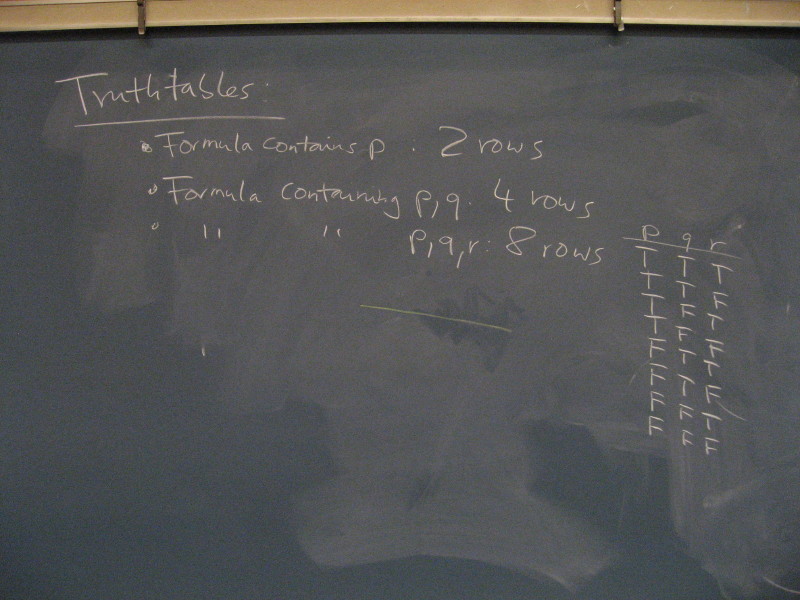 Truthtables:
Formula contains p . 2 rows
Formula containing p,q. 4 rows
" " p,q,r: 8 rows
p q r
T T T
T T F
T F T
T F F
F T T
F T F
F F T
F F F